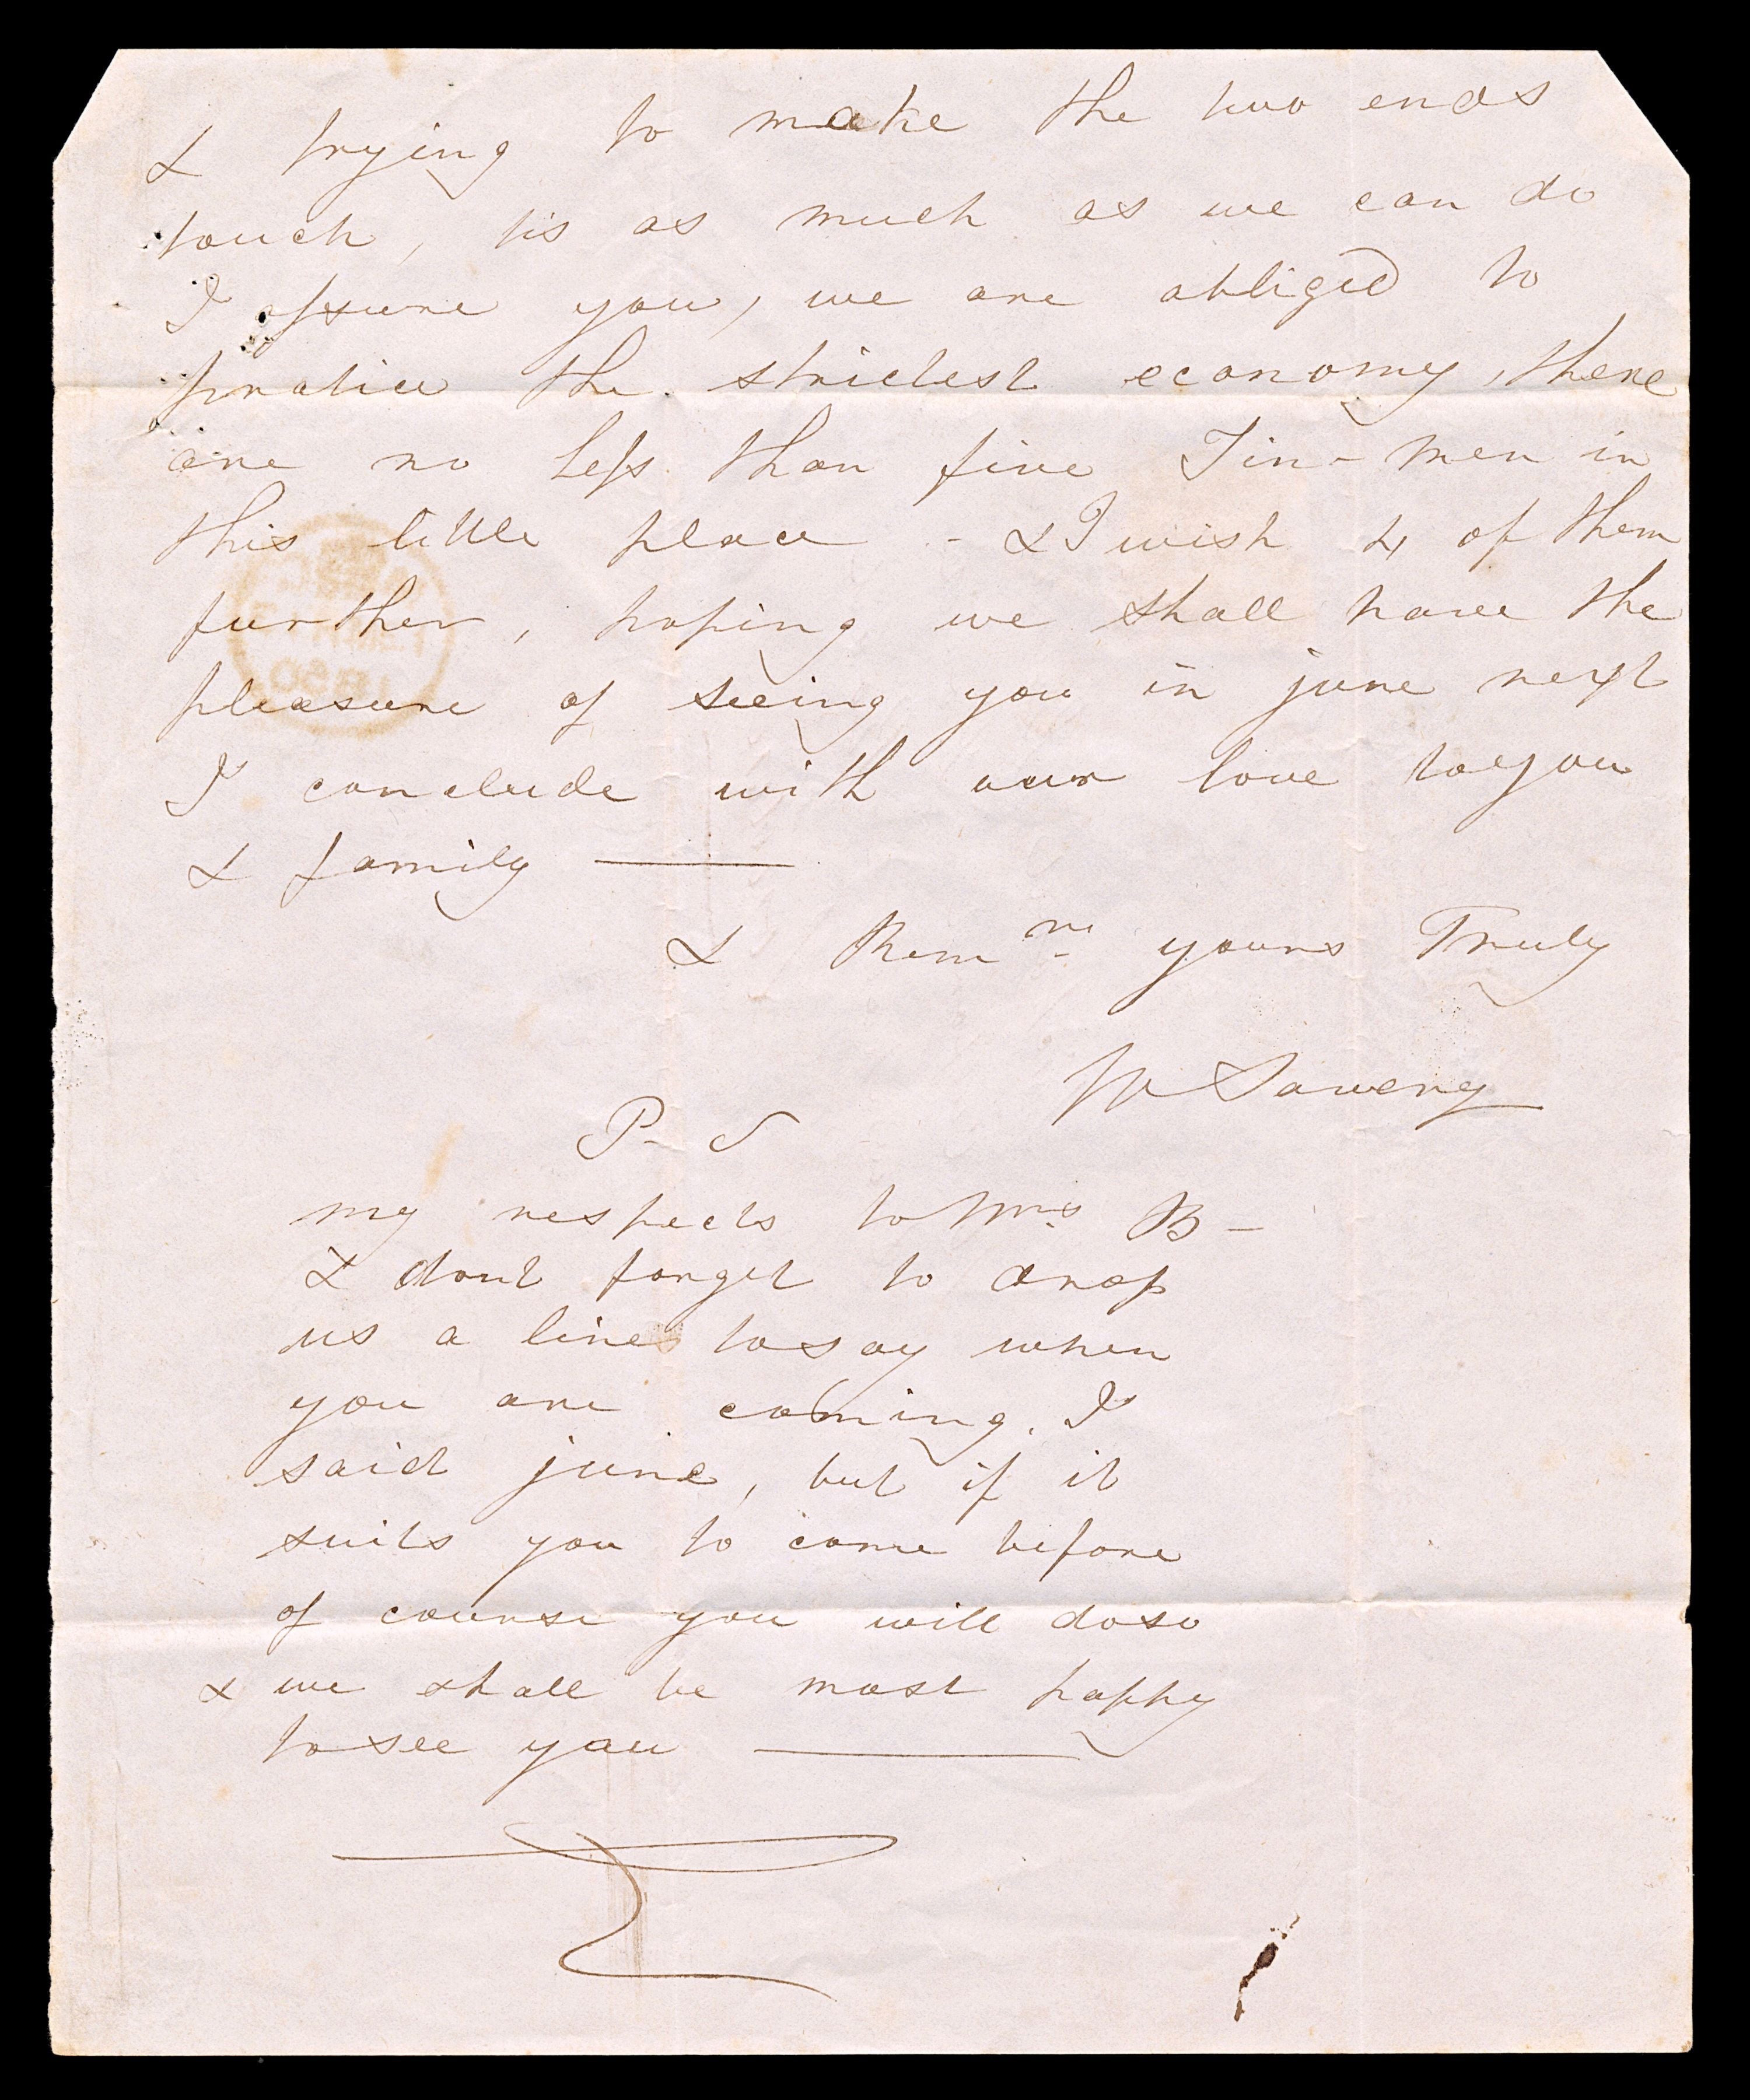 & trying to make the two ends
touch, tis as much as we can do
I assure you, we are obliged to
pratice the strictest economy, there
are no less than five Tin-men in
this little place - & I wish 4 of them
further, hoping we shall have the
pleasure of seeing you in june next
I conclude with our love to you
& family ——
& Remn yours Truly
W Savery
P-S
my respects to Mrs B-
& dont forget to drop
us a line to say when
you are coming. I
said june, but if it
suits you to come before
of course you will do so
& we shall be most happy
to see you ——
1850